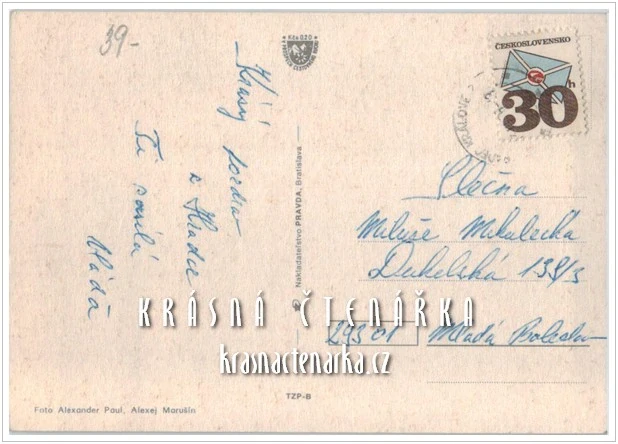 39-
Kčs 0,50
ČESKOSLOVENSKO
30h
KRÁLOVÉ
Krásný
pozdrav
z Hradce
Ti posílá
Vláďa
Nakladatelstvo PRAVDA, Bratislava
Slečna
Miluše Mikulecká
Dukelská 139/3
29301 Mladá Boleslav
KRÁSNÁ ČTENÁŘKA
krasnactenarka.cz
TZP-B
Foto Alexander Paul, Alexej Marušin